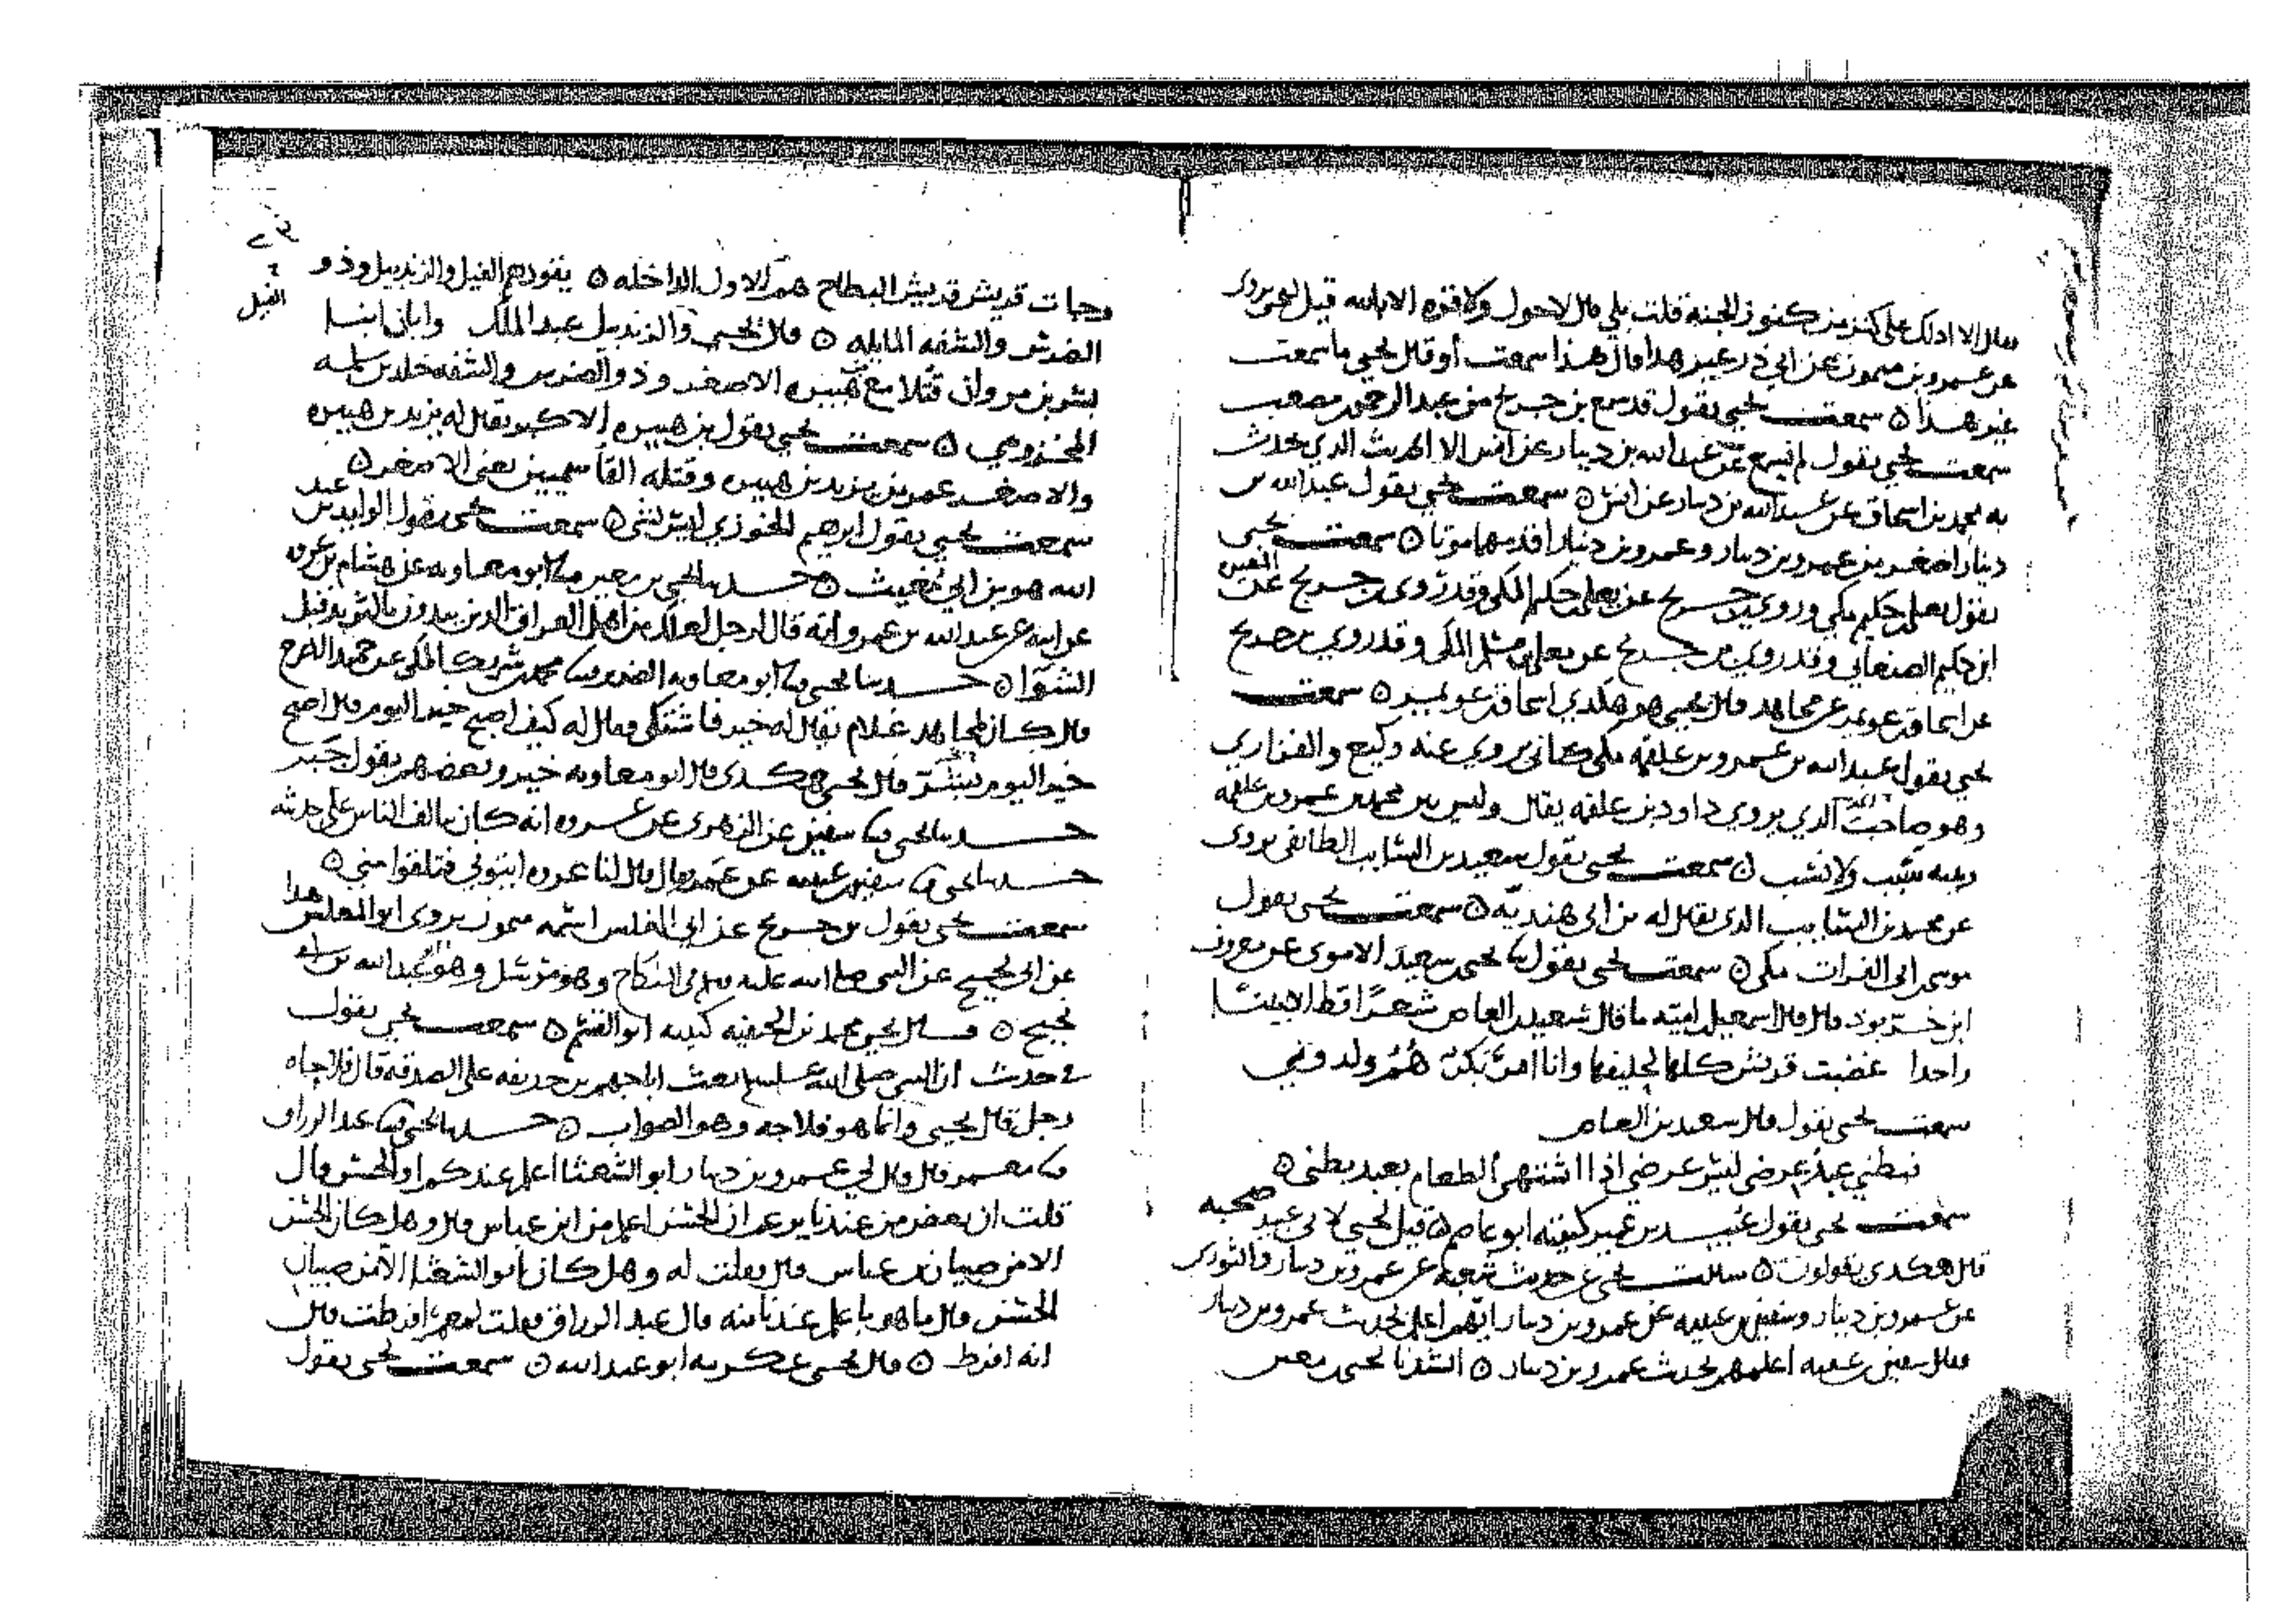 فقال الا ادلك على كنز من كنوز الجنة قلت بلى قال لا حول ولا قوة الا بالله قيل ليحيى يروى
عن عمرو بن ميمون عن ابي ذر غير هذا قال هذا سمعت او قال يحيى ما سمعت
غير هذا ○ سمعت يحيى يقول قد سمع بن جريج من عبد الرحمن مصعب
سمعت يحيى يقول لم نسمع عن عبد الله بن دينار عن انس الا الحديث الذي يحدث
به محمد بن اسحاق عن عبد الله بن دينار عن انس ○ سمعت يحيى يقول عبد الله بن
دينار اصغر من عمرو بن دينار وعمرو بن دينار اقدمهما موتا ○ سمعت يحيى
يقول يعلى بن حكيم مكي وروى بن جريج عن يعلى بن حكيم المكي وقد روى بن جريج عن
ابن حكيم الصنعاني وقد روى بن جريج عن يعلى بن مسلم المكي وقد روى بن جريج
عن اسحاق بن عويمر عن مجاهد قال يحيى هو هكذى اسحاق بن عويمر ○ سمعت
يحيى يقول عبد الله بن عمرو بن علقمه مكي كان يروي عنه وكيع والفزاري
وهو صاحب الذي يروي داود بن علقمه يقال وليس بين محمد بن عمرو بن علقمه
وبينه سبب ولا نسب ○ سمعت يحيى يقول سعيد بن السايب الطائفي يروى
عن محمد بن السايب الذي يقال له بن ابي هنديه ○ سمعت يحيى يقول
موسى ابي الفرات مكي ○ سمعت يحيى يقول نا يحيى بن سعيد الاموى عن معروف
ابن خربوذ قال قال اسمعيل اميه ما قال سعيد بن العاص شعرا قط الا بيتا
واحدا غضبت قريش كلها لحليفها وانا امرؤ بكر هم ولدوني
سمعت يحيى يقول قال سعيد بن العاص
فبطني عبد عرضي ليس عرضي اذا اشتهى الطعام بعبد بطني ○
سمعت يحيى يقول عبيد بن عمير كنيته ابو عاصم ○ قيل ليحيى لابي عبيد صحبه
قال هكذى يقولون ○ سالت يحيى عن حديث شعبه عن عمرو بن دينار والثورى
عن عمرو بن دينار وسفين بن عيينه عن عمرو بن دينار ايهم اعلم بحديث عمرو بن دينار
فقال سفين بن عيينه اعلمهم بحديث عمرو بن دينار ○ انشدنا يحيى بن معين
وجات قريش قريش البطاح هم الاول الداخله ○ يقودهم الفيل والزندبيل وذو
الفيل
الضرس والشفه المايله ○ قال يحيى والزندبيل عبد الملك وابان ابنا
بشر بن مروان قتلا مع هبيره الاصغر وذو الضرس والشفه خلد بن سلمه
المخزومي ○ سمعت يحيى يقول بن هبيره الاكبر يقال له يزيد بن هبيره
والاصغر عمر بن يزيد بن هبيره وقتله القاسميين يعنى الاصغر ○
سمعت يحيى يقول ابرهيم الخوزي ليس بشى ○ سمعت يحيى يقول الوليد بن عبد
الله هو بن ابي مغيث ○ حدثنا يحيى بن معين نا ابو معاويه عن هشام بن عروه
عن ابيه عن عبد الله بن عمرو انه قال لرجل لعلك من اهل العراق الذين يبدون بالثريد قبل
الشوا ○ حدثنا يحيى نا ابو معاويه الضرير نا محمد بن شريك المكي عن حميد الاعرج
قال كان لمجاهد غلام يقال له خير فاشتكى فقال له كيف اصبح خير اليوم قال اصبح
خير اليوم بشر قال يحيى هكذى قال ابو معاويه خير وبعضهم يقول جبر
حدثنا يحيى نا سفين عن الزهرى عن عروه انه كان يتالف الناس على حديثه
حدثنا يحيى نا سفين بن عيينه عن عمرو قال قال لنا عروه ايتوني فتلقوا مني ○
سمعت يحيى يقول بن جريج عن ابي المغلس اسمه ميمون يروى ابو المغلس هذا
عن ابي نجيح عن النبي صلى الله عليه وسلم في النكاح وهو مرسل وهو عبد الله بن ابي
نجيح ○ قال يحيى محمد بن الحنفيه كنيته ابو القسم ○ سمعت يحيى يقول
في حديث ان النبي صلى الله عليه وسلم بعث ابا جهم بن حذيفه على الصدقه قال فلاجاه
رجل قال يحيى وانما هو فلاجه وهو الصواب ○ حدثنا يحيى نا عبد الرزاق
نا معمر قال قال لي عمرو بن دينار ابو الشعثا اعلم عندكم او الحسن قال
قلت ان بعض من عندنا يزعم ان الحسن اعلم من ابن عباس قال وهل كان الحسن
الا من صبيان بن عباس قال فقلت له وهل كان ابو الشعثا الا من صبيان
الحسن قال ما هو باعلم عندنا منه قال عبد الرزاق فقلت لمعمر افرطت قال
انه افرط ○ قال يحيى عكرمه ابو عبد الله ○ سمعت يحيى يقول